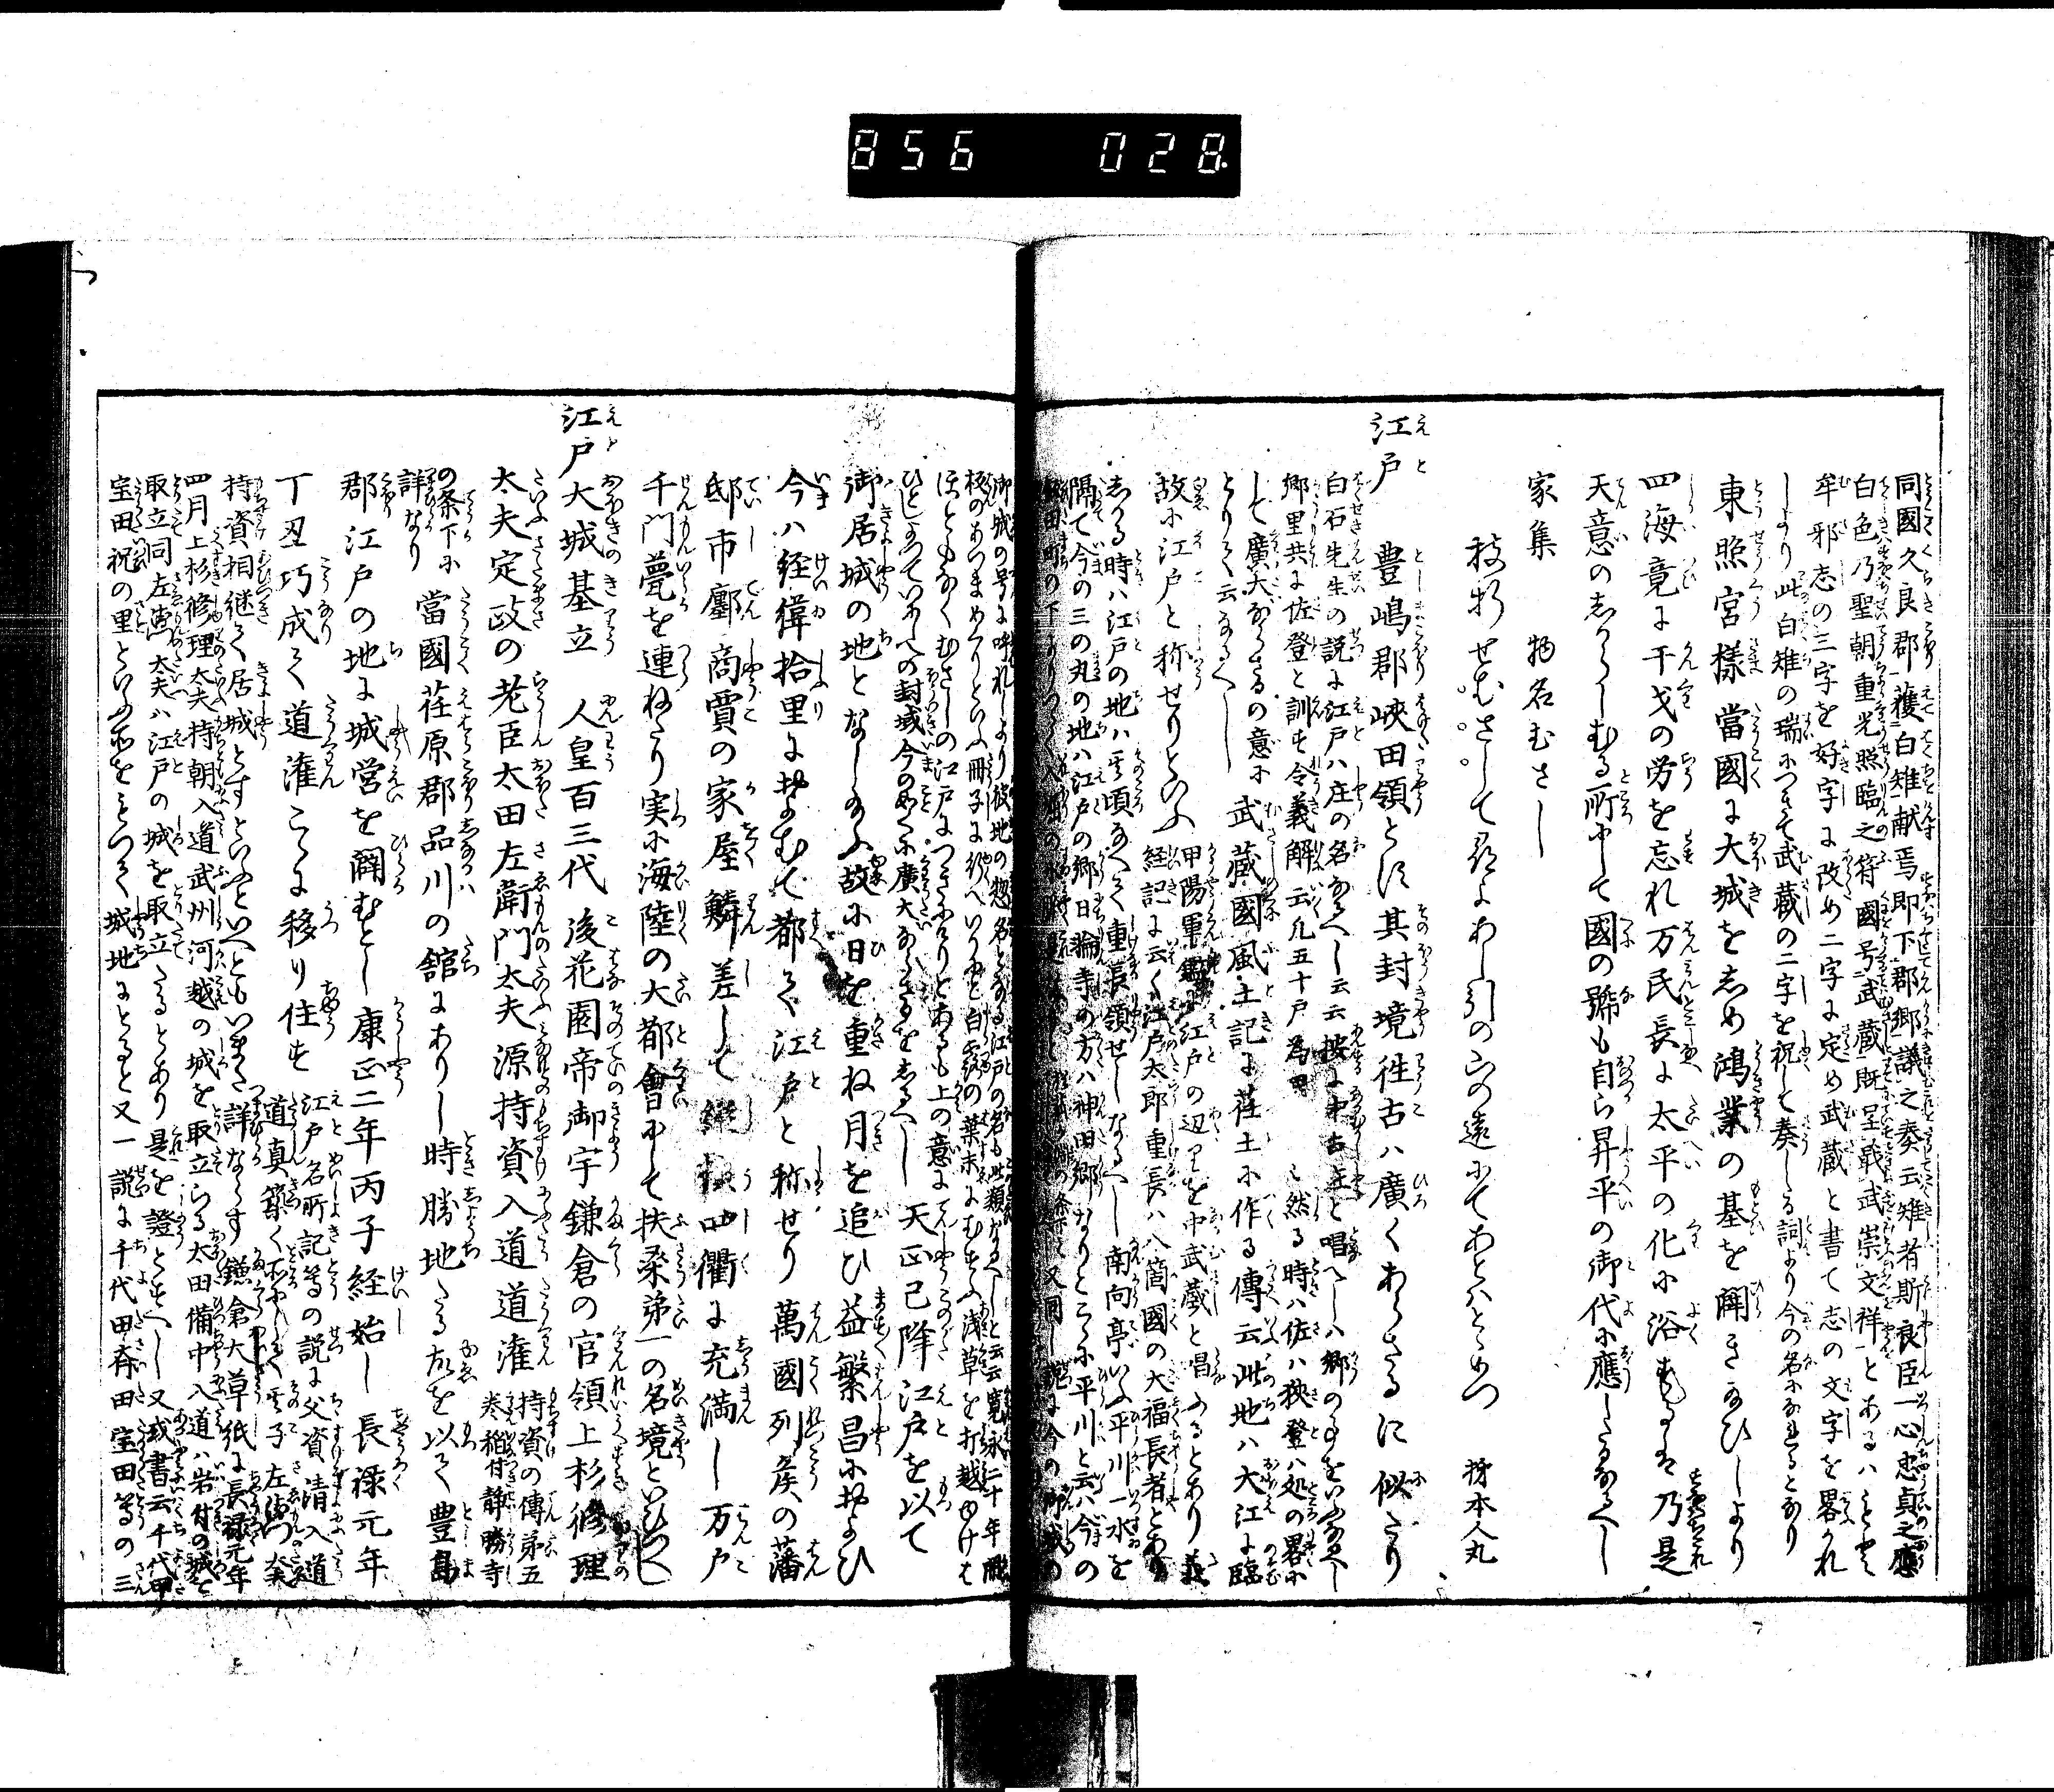 856 028
同國久良郡獲白雉献焉即下郡郷議之奏云雉者斯良臣一心忠貞之應
白色乃聖朝重光照臨之符國号武蔵既呈戢武崇文祥とあるハ
牟邪志の三字を好字に改め二字に定め武蔵と書て志の文字を畧かれ
しより此白雉の瑞につきて武蔵の二字を祝して奏しる詞より今の名になれるとなり
東照宮様當國に大城をしめ鴻業の基を開き給ひしより
四海竟に干戈の労を忘れ万民長に太平の化に浴する乃是
天意のしからしむる所にして國の號も自ら昇平の御代に應したるなるへし
家集 物名むさし
せむさして よあし引の山の遠にてあとハとめつ 柿本人丸
江戸 豊嶋郡峡田領とす其封境往古ハ廣くあらさるに似たり
白石先生の説に江戸ハ庄の名なるへし云云按に中古庄と唱へしハ郷の事をいふなるへし
郷里共に佐登と訓す令義解云凡五十戸為里 然る時ハ佐ハ狭登ハ処の畧に
して廣大ならさるの意に武蔵國風土記に荏土に作る傳云此地ハ大江に臨
とりて云なるへし
故に江戸と称せりといふ 甲陽軍鑑に江戸の辺りを中武蔵と唱ふるとあり義
経記に云く江戸太郎重長ハ八箇國の大福長者とあり
しかる時ハ江戸の地ハ其頃なへて重長領せしなるへし南向亭いふ平川一水を
隔て今の三の丸の地ハ江戸の郷日輪寺の方ハ神田郷なりとこゝに平川と云ハ今の
飯田町の下より
御城の号に呼れしより彼地の惣名となる江戸の名も此類なるへしと云云寛永二十年
板のあつまめくりといふ冊子に いりやと白露の葉末にむすふ浅草を打越ゆけは
ほとともなくむさしの江戸につきにけりとあるも上の意に
ひとしよつていにしへの封域今の如くに廣大ならさるをしるへし 天正已降江戸を以て
御居城の地となし給ふ故に日を重ね月を追ひ益繁昌におよひ
今ハ経緯拾里におよむて都て江戸と称せり萬國列侯の藩
邸市鄽商賈の家屋鱗差して 衢に充満し万戸
千門甍を連ねたり実に海陸の大都會にして扶桑第一の名境といひつへし
江戸大城基立 人皇百三代後花園帝御宇鎌倉の官領上杉修理
太夫定政の老臣太田左衛門太夫源持資入道道灌 持資の傳第五
巻稲付静勝寺
の条下に
詳なり 當國荏原郡品川の舘にありし時勝地たる故を以て豊島
郡江戸の地に城営を闢むとし康正二年丙子経始し長禄元年
丁丑巧成て道灌こゝに移り住す 江戸名所記等の説に父資清入道
道真築く所にして其子左衛門太夫
持資相継て居城とすといふといへともいまた詳ならす鎌倉大草紙に長禄元年
四月上杉修理太夫持朝入道武州河越の城を取立らる太田備中入道ハ岩付の城を
取立同左衛門太夫ハ江戸の城を取立たるとあり是を證とすへし又或書云千代田
宝田祝の里といふ所をもつて城地にとると又一説に千代田斎田宝田等の三